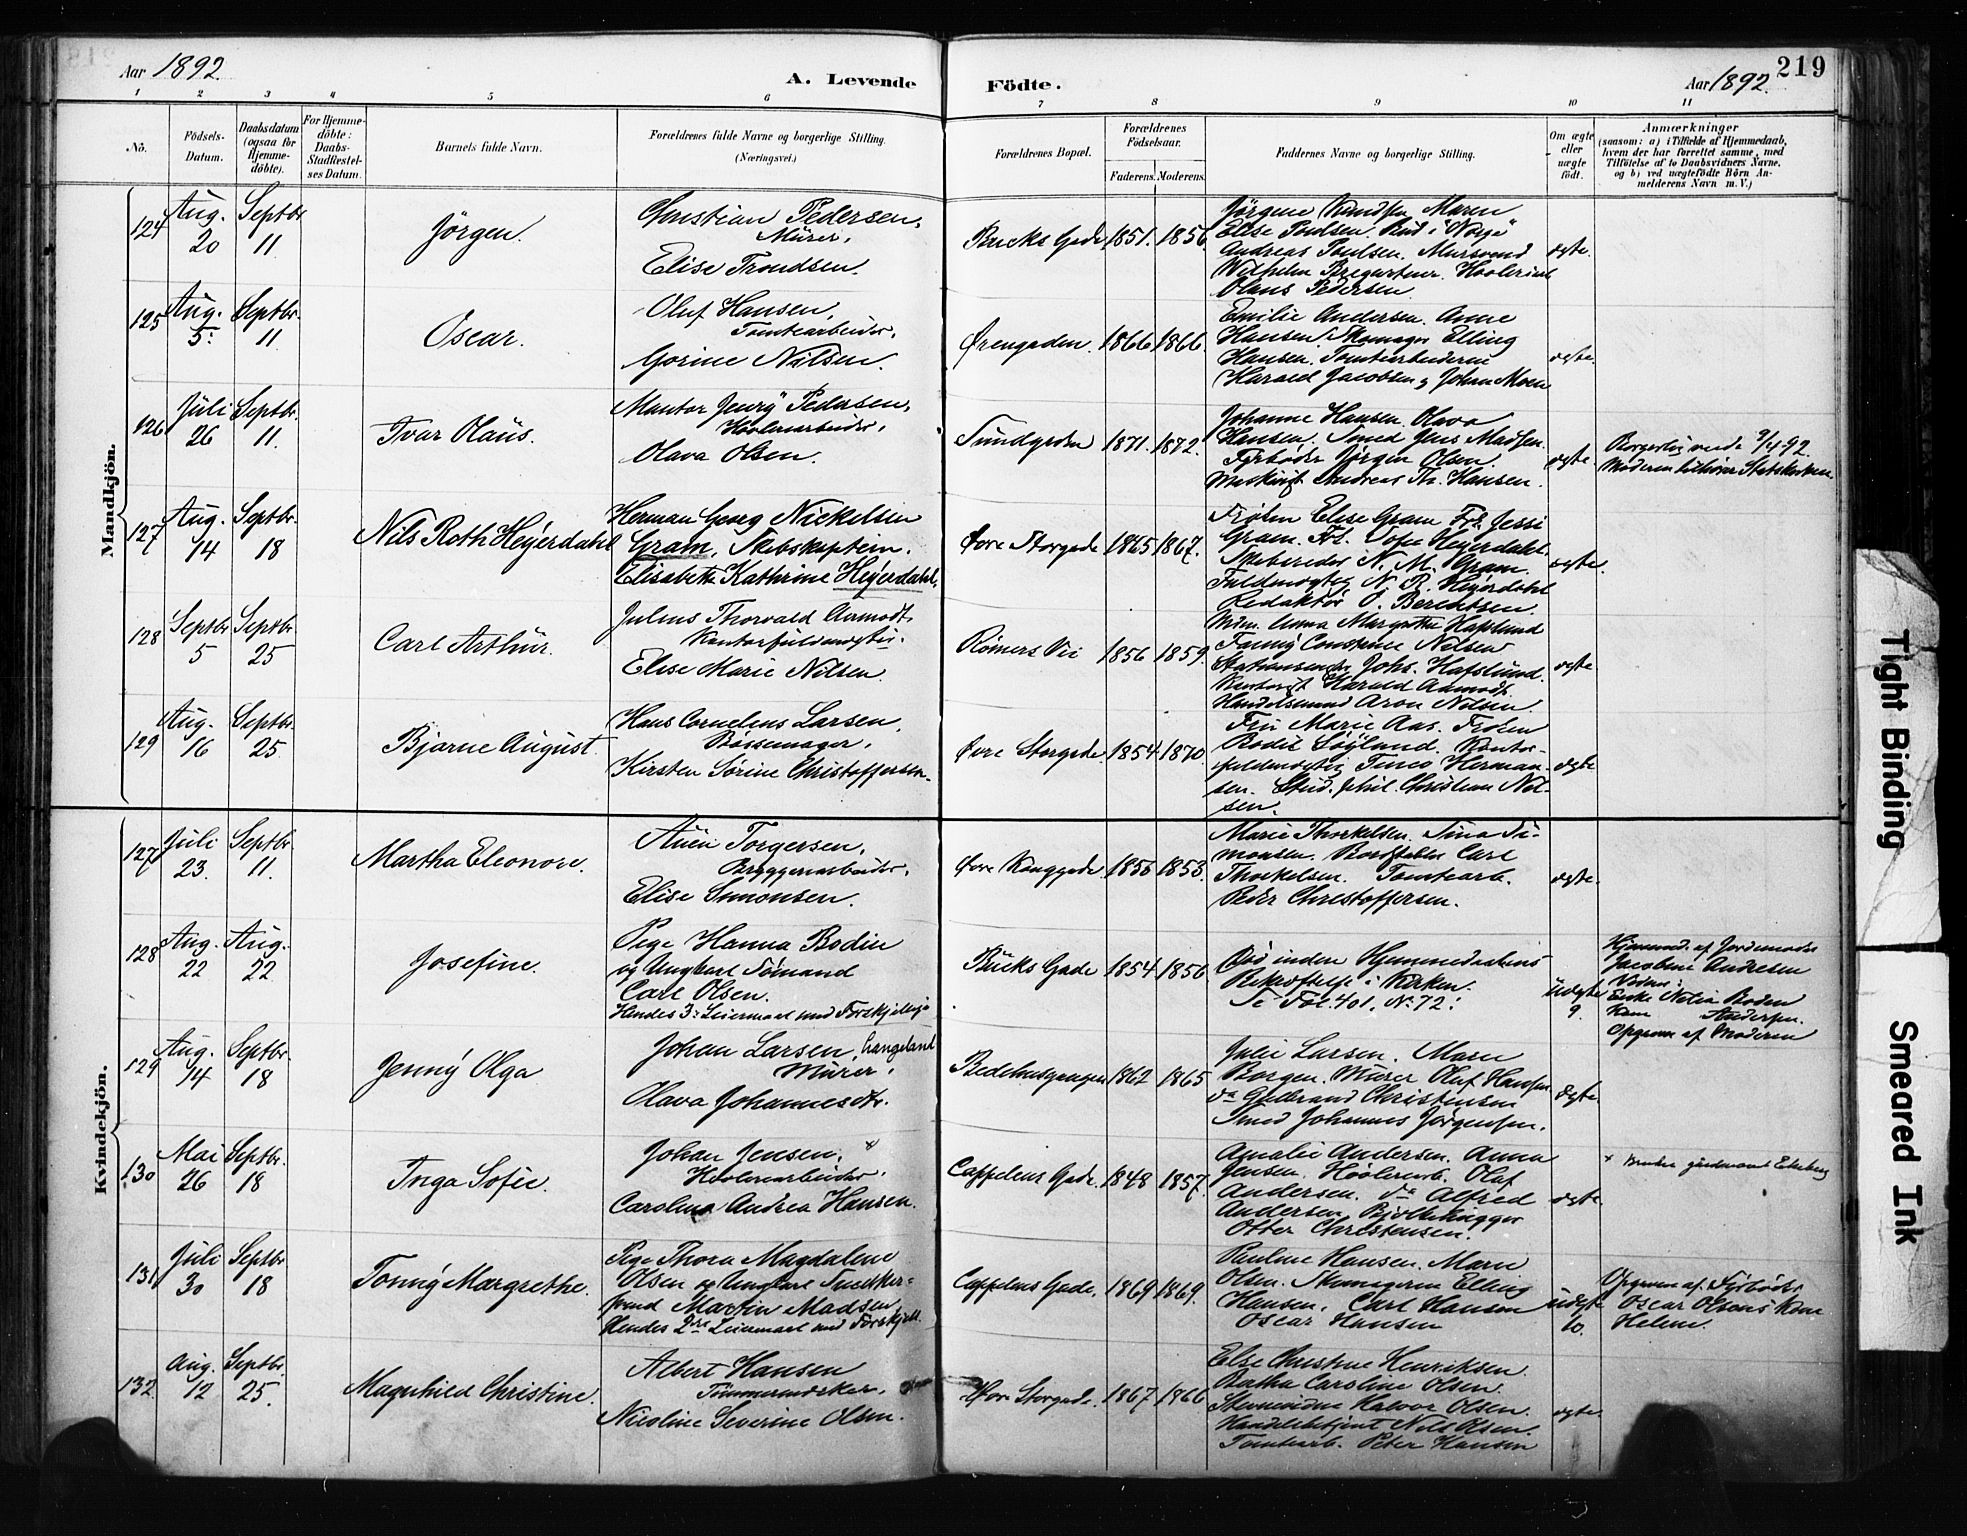 Aar 1892.
A. Levende
Födte.
Aar 1892.
219
1 2 3 4 5 6 7 8 9 10 11
No.
Födsels-Datum.
Daabsdatum (ogsaa for Hjemme-döbte).
For Hjemme-döbte: Daabs-Stadfæstel-ses Datum.
Barnets fulde Navn.
Forældrenes fulde Navne og borgerlige Stilling. (Næringsvei.)
Forældrenes Bopæl.
Forældrenes Födselsaar.
Faderens. Moderens.
Faddernes Navne og borgerlige Stilling.
Om ægte eller uægte födt.
Anmærkninger
(saasom: a) i Tilfælde af Hjemmedaab,
hvem der har forrettet samme, med
Tilföielse af to Daabsvidners Navne,
og b) ved uægtefödte Börn An-
melderens Navn m. V.)
Mandkjön.
124 Aug. 20 Septbr. 11
Jörgen.
Christian Pedersen,
Mürer,
Elise Trondsen.
Bucks Gade 1851. 1856.
Jörgine Knudsen Maren
Elise Poulsen.
Andreas Poulsen. Mursvend
Wilhelm
Olaus Pedersen
ægte.
125 Aug. 5. Septbr. 11
Oscar.
Oluf Hansen,
Tomtearbeider,
Gorine Nilsen.
Ørengaden. 1866 1866.
Emilie Andersen. Anne
Hansen. Skomager Elling
Hansen. Tomtearbeiderne
Harald Jacobsen og Johan Moen
ægte.
126 Juli 26 Septbr. 11.
Ivar Olaüs.
Pedersen,
Høvleriarbeider,
Olava Olsen.
Sundgaden 1871. 1872.
Johanne Hansen. Olava
Hansen. Smed Jens Madsen.
Fyrbøder Jørgen Olsen.
Maskinist Andreas Th. Hansen.
ægte.
Borgerlig viede 9/4-92.
Moderen tilhører Statskirken
127 Aug. 14 Septbr. 18
Nils Roth Heyerdahl
Herman Georg Nickelsen
Gram, Skibskaptein.
Elisabeth Kathrine Heyerdahl.
Øvre Storgade 1865 1867.
Frøken Elise Gram Frk. Jessi
Gram. Frk. Sofie Heyerdahl.
Skibsreder N. M. Gram.
Fuldmægtig N. R. Heyerdahl
Redaktør O. Berentsen.
ægte.
128 Septbr 5 Septbr 25
Carl Arthur.
Julius Thorvald Aamodt,
Kontorfuldmægtig.
Elise Marie Nilsen.
Rømers Vei 1856 1859.
Anna Margrethe Hafslund
Fanny Constance Nilsen
Johs. Hafslund.
Kontorist Harald Aamodt.
Handelsmand Aron Nilsen
ægte
129 Aug. 16 Septbr. 25
Bjarne August.
Hans Cornelius Larsen,
Bøssemager,
Kirsten Sörine Christoffersen.
Øvre Storgade. 1854 1870.
Fru Marie Aas. Frøken
Bodil Löyland. Kontor-
fuldmægtig Timco Herman-
sen. Stud. phil. Christian Nil-
sen.
ægte
Kvindekjön.
127 Juli 23. Septbr. 11.
Martha Eleonore.
Torgersen,
Bryggeriarbeider,
Elise Simonsen.
Øvre 1856 1853.
Marie Thorkelsen. Tina Si-
monsen. Carl
Thorkelsen. Tomtearb.
Peder Christoffersen.
ægte.
128 Aug. 22 Aug. 22
Josefine.
Pige Hanna Bodin
og Ungkarl Sömand
Carl Olsen.
Hendes 3. Leiermaal med Forskjellige
Bücks Gade 1854 1856.
Død inden Hjemmedaabens
Bekræftelse i Kirken.
Se Fol. 401. No. 72.
uægte 9.
Hjemmed. af Jordemoder
Jacobine Andresen
Vidner:
Enke Netia Boden
Kone Andersen.
Opgivne af Moderen
129 Aug. 14 Septbr. 18
Jenny Olga
Johan Larsen, Langeland
Mürer,
Olava Johannesdtr.
Bedehusgangen 1862 1865
Julie Larsen. Maren
Borgen. Mürer Oluf Hansen.
do Gulbrand Christensen
Smed Johannes Jørgensen.
ægte.
130 Mai 26 Septbr. 18
Inga Sofie.
Johan Jensen, x
Høvleriarbeider,
Carolina Andrea Hansen.
Cappelens Gade. 1848 1857.
Amalie Andersen. Anna
Jensen. Høvleriarb. Olaf
Andersen. do Alfred
Andersen. Bjelkehugger
Otter Christensen.
ægte.
131 Juli 30 Septbr 18
Tonny Margrethe.
Pige Thora Magdalene
Olsen og Ungkarl Snedker-
svend Martin Madsen
Hendes 2det Leiermaal med Forskjell.
Cappelens Gade. 1869 1869.
Pauline Hansen. Maren
Olsen. Skomagerne Elling
Hansen, Carl Hansen
Oscar Hansen
uægte 10.
Opgiven af Fyrbøder
Oscar Olsens Kone
Helene.
132. Aug. 12 Septbr. 25.
Magnhild Christine.
Albert Hansen
Tömmermærker,
Nicoline Severine Olsen.
Øvre Storgade. 1867 1866
Else Christine Henriksen.
Caroline Olsen.
Halvor Olsen.
Handelsbetjent Nils Olsen.
Tomtearb. Peter Hansen
ægte.
Tight Binding
Smeared Ink